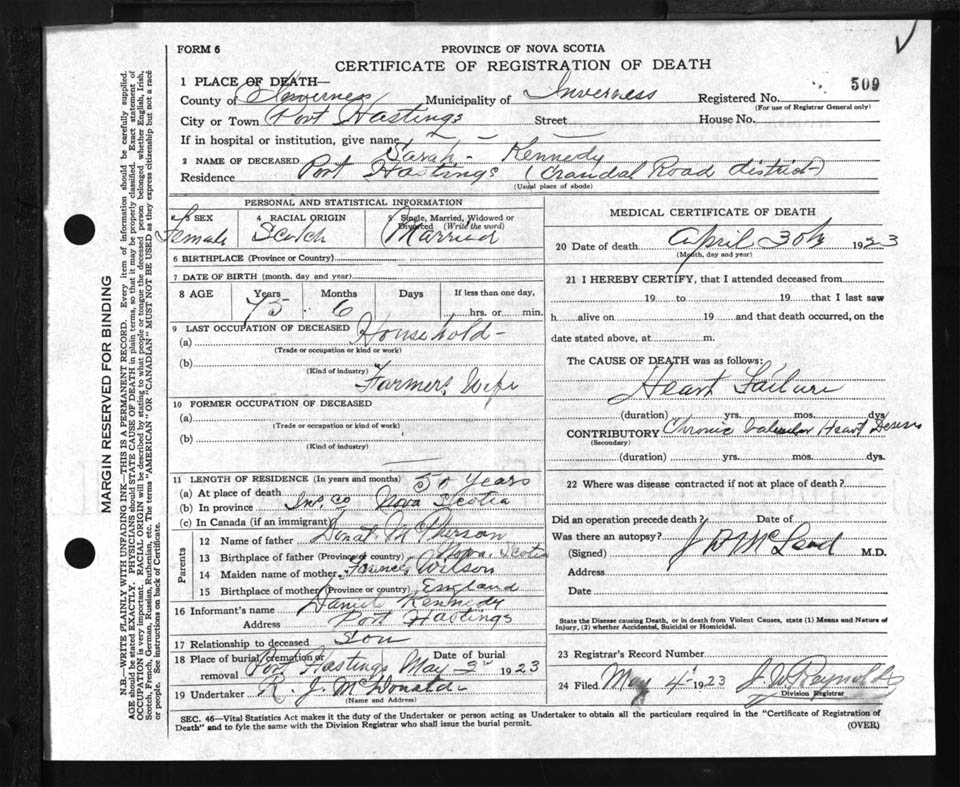 FORM 6
PROVINCE OF NOVA SCOTIA
CERTIFICATE OF REGISTRATION OF DEATH
509
1 PLACE OF DEATH—
County of Inverness Municipality of Inverness Registered No.
(For use of Registrar General only)
City or Town Port Hastings Street — House No.
If in hospital or institution, give name — —
2 NAME OF DECEASED Sarah Kennedy
Residence Port Hastings (Crandal Road district)
(Usual place of abode)
PERSONAL AND STATISTICAL INFORMATION
3 SEX 4 RACIAL ORIGIN 5 Single, Married, Widowed or
Divorced (Write the word)
Female Scotch Married
6 BIRTHPLACE (Province or Country)
7 DATE OF BIRTH (month, day and year)
8 AGE Years Months Days If less than one day,
75 6 hrs. or min.
9 LAST OCCUPATION OF DECEASED
(a) Household
(Trade or occupation or kind or work)
(b)
(Kind of industry)
Farmers Wife
10 FORMER OCCUPATION OF DECEASED
(a)
(Trade or occupation or kind of work)
(b)
(Kind of industry)
11 LENGTH OF RESIDENCE (In years and months) 50 Years
(a) At place of death
(b) In province Inv. Co Nova Scotia
(c) In Canada (if an immigrant)
Parents
12 Name of father Donat McPherson
13 Birthplace of father (Province or country) Nova Scotia
14 Maiden name of mother Wilson
15 Birthplace of mother (Province or country) England
16 Informant's name Daniel Kennedy
Address Port Hastings
17 Relationship to deceased Son
18 Place of burial, cremation or removal Port Hastings Date of burial May 3rd 1923
19 Undertaker R. J. McDonald
(Name and Address)
MEDICAL CERTIFICATE OF DEATH
20 Date of death April 30th 1923
(Month, day and year)
21 I HEREBY CERTIFY, that I attended deceased from
19 to 19 that I last saw
h alive on 19 and that death occurred, on the
date stated above, at m.
The CAUSE OF DEATH was as follows:
Heart Failure
(duration) yrs. mos. dys
CONTRIBUTORY Chronic Valvular Heart Disease
(Secondary)
(duration) yrs. mos. dys.
22 Where was disease contracted if not at place of death?
Did an operation precede death? Date of
Was there an autopsy?
(Signed) J D McLeod M.D.
Address
Date
State the Disease causing Death, or in death from Violent Causes, state (1) Means and Nature of
Injury, (2) whether Accidental, Suicidal or Homicidal.
23 Registrar's Record Number
24 Filed May 4 1923 J. W. Reynolds
Division Registrar
SEC. 46—Vital Statistics Act makes it the duty of the Undertaker or person acting as Undertaker to obtain all the particulars required in the "Certificate of Registration of
Death" and to fyle the same with the Division Registrar who shall issue the burial permit. (OVER)
MARGIN RESERVED FOR BINDING
N.B.—WRITE PLAINLY WITH UNFADING INK—THIS IS A PERMANENT RECORD. Every item of information should be carefully supplied.
AGE should be stated EXACTLY. PHYSICIANS should STATE CAUSE OF DEATH in plain terms, so that it may be properly classified. Exact statement of
OCCUPATION is very important. RACIAL ORIGIN will be described by stating to what people or tongue the deceased person belonged whether English, Irish,
Scotch, French, German, Russian, Ruthenian, etc. The terms "AMERICAN" OR "CANADIAN" MUST NOT BE USED as they express citizenship but not a race
or people. See instructions on back of Certificate.